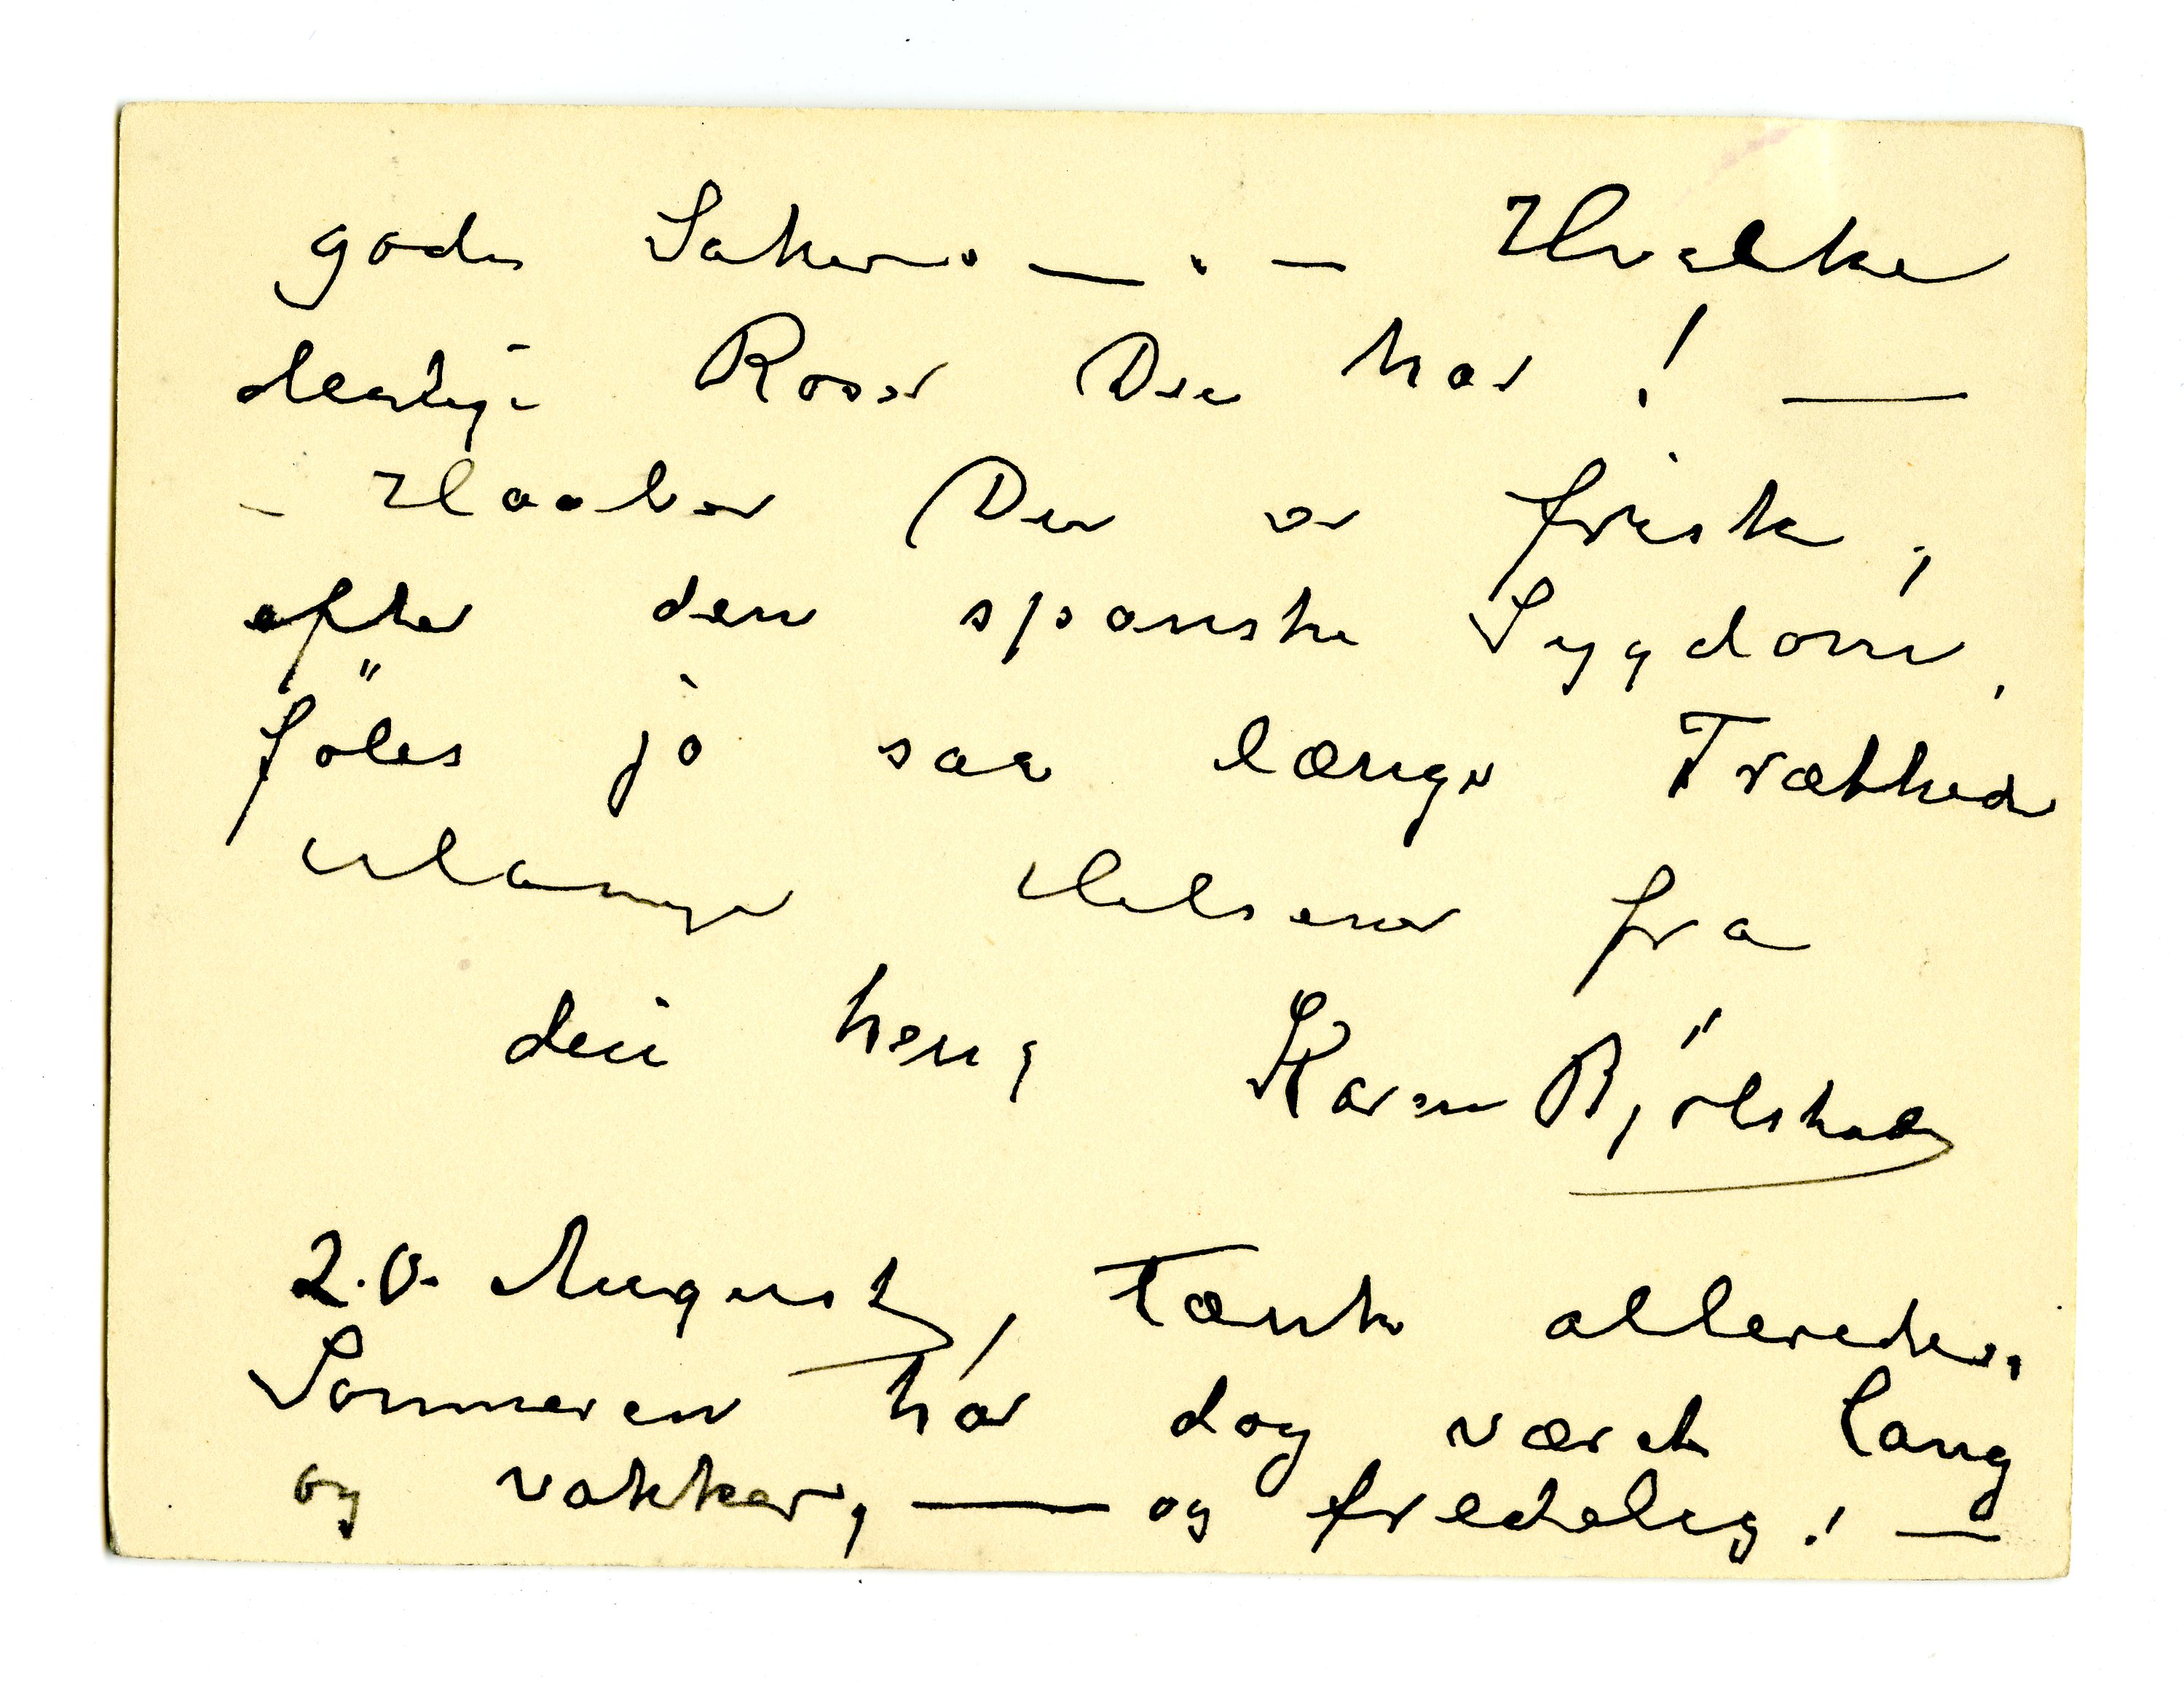 gode Saker. — . — Hvilke
deilige Roser Du har! —
- Haaber Du er frisk,
efter den spanske Sygdom,
föles jo saa længe Træthed
Mange Hilsener fra
din heng Karen Bjölstad
20. August, Tænk allerede,
Sommeren har dog været lang
og vakker, — og fredelig! —